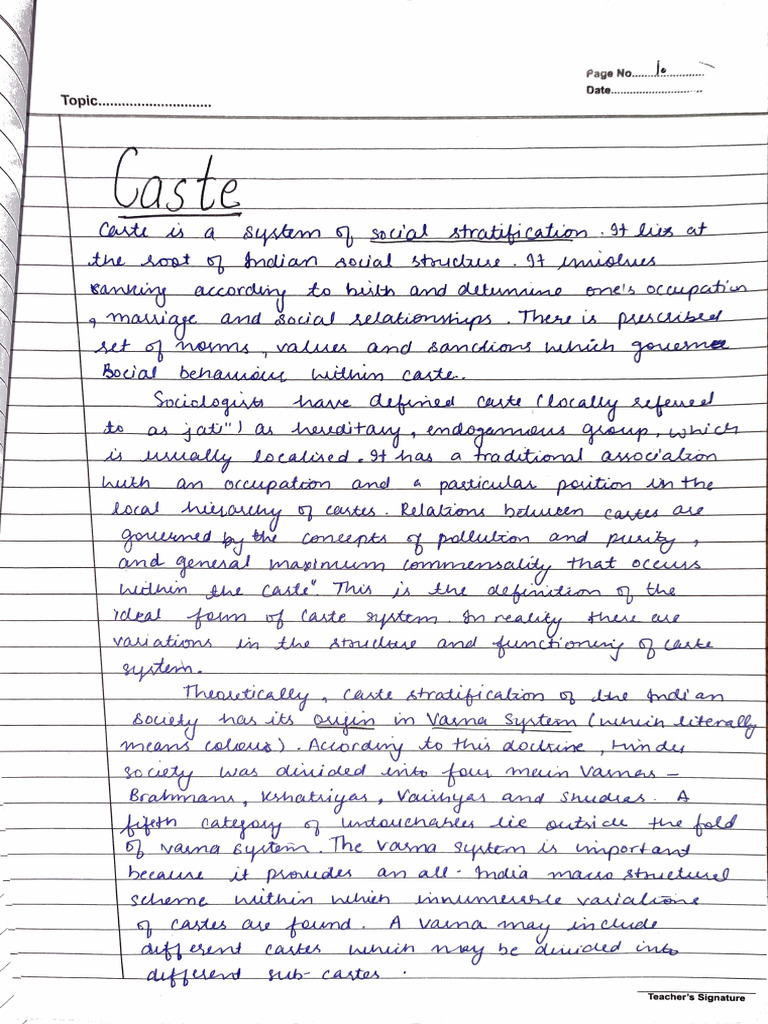 Page No.........10.............
Date............................
Topic.............................
Caste
Caste is a system of social stratification. It lies at
the root of Indian social structure. It involves
ranking according to birth and determine one's occupation
, marriage and social relationships. There is prescribed
set of norms, values and sanctions which governe
Social behaviour within caste.
Sociologists have defined caste (locally referred
to as jati") as hereditary, endogamous group, which
is usually localised. It has a traditional association
with an occupation and a particular position in the
local hierarchy of castes. Relations between castes are
governed by the concepts of pollution and purity,
and general maximum commensality that occurs
within the caste". This is the definition of the
ideal form of caste system. In reality there are
variations in the structure and functioning of caste
system.
Theoretically, caste stratification of the Indian
society has its origin in Varna System (which literally
means colour). According to this doctrine, Hindu
society was divided into four main Varnas –
Brahmans, Kshatriyas, Vaishyas and Shudras. A
fifth category of untouchables lie outside the fold
of varna system. The varna system is important
because it provides an all-India macro structural
scheme within which innumerable variations
of castes are found. A varna may include
different castes which may be divided into
different sub-castes.
Teacher's Signature